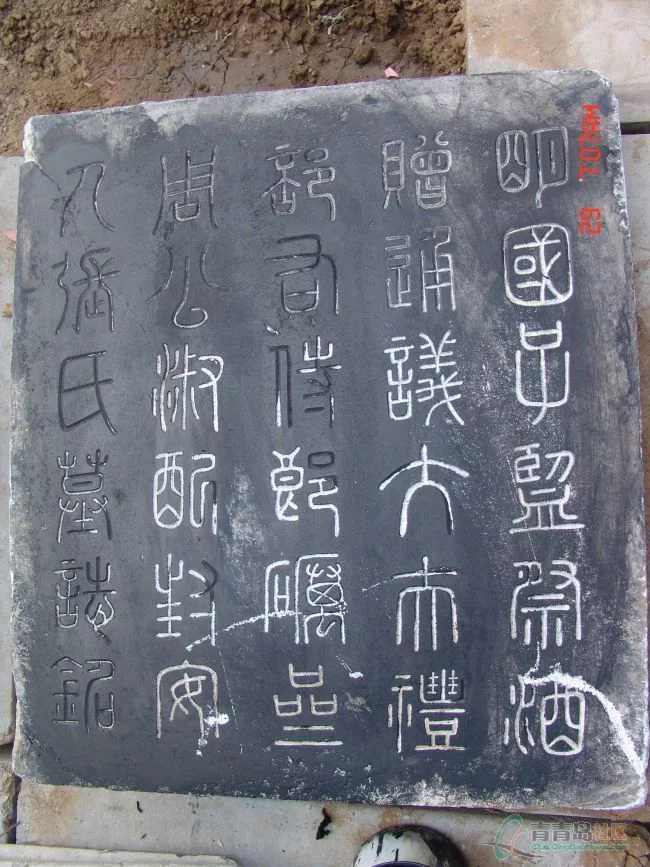 明國子監祭酒
贈通議大夫禮
部右侍郎礪齋
周公淑配封安
人張氏墓誌銘
青青岛社区
club.QingDaoNews.com